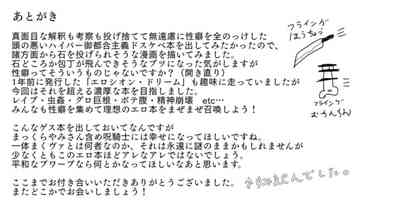 あとがき
真面目な解釈も考察も投げ捨てて無遠慮に性癖を全のっけした
頭の悪いハイパー御都合主義ドスケベ本を出してみたかったので、
諸方面から石を投げられそうな漫画を描いてみました。
石どころか包丁が飛んできそうなブツになった気がしますが
性癖ってそういうものじゃないですか？（開き直り）
1年前に発行した「エロシオン・ドグマ」も趣味に走っていましたが
今回はそれを超える濃厚な本を目指しました。
レイプ・虫姦・グロ巨根・ボテ腹・精神崩壊 etc…
みんなも性癖を集めて理想のエロ本をまぜまぜ召喚しよう！
こんなゲス本を出しておいてなんですが
まっくらやみさん含め呪騎士には幸せになってほしいですね。
一体まくヴァとは何者なのか、それは永遠に謎のままかもしれませんが
少なくともこのエロ本ほどアレなアレではないでしょう。
平和なプワープなら何とかなってほしいなあと思います。
ここまでお付き合いいただきありがとうございました。
またどこかでお会いしましょう！
フライング
ほうちょう
フライング